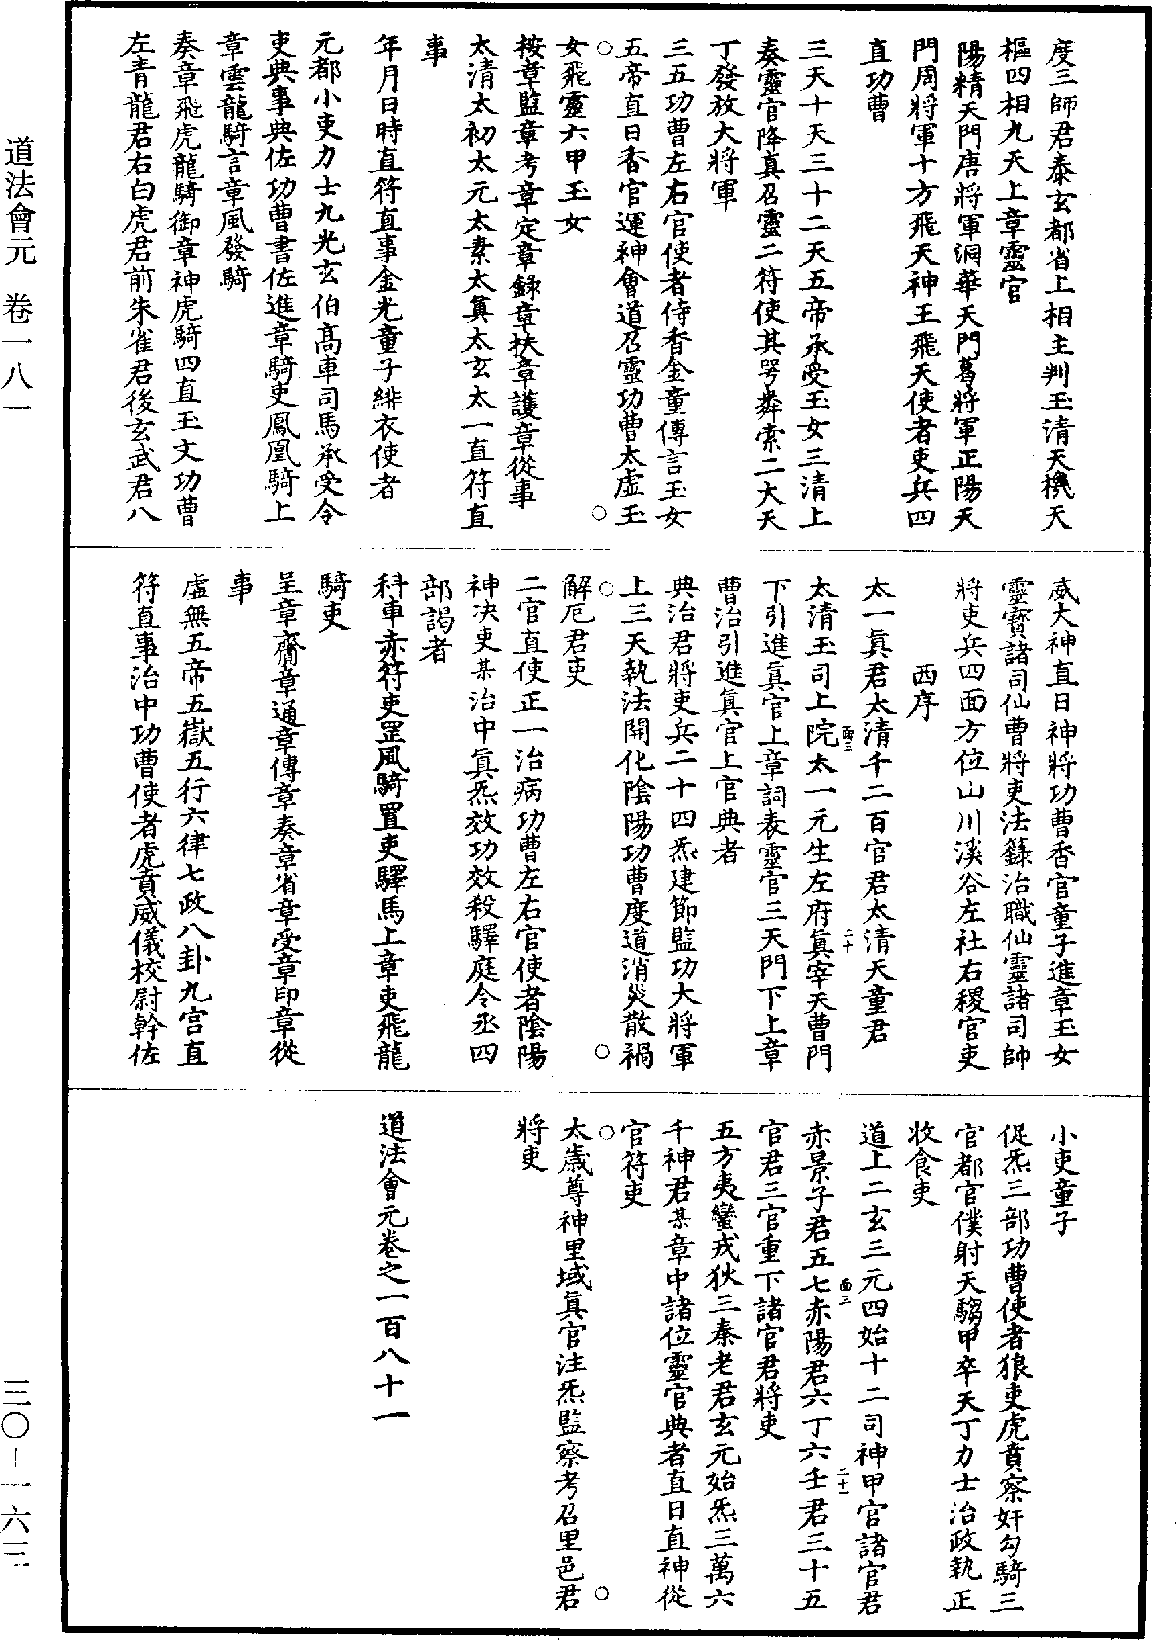 度三師君泰玄都省上相主判玉清天機天
樞四相九天上章靈官
陽精天門唐將軍洞華天門葛將軍正陽天
門周將軍十方飛天神王飛天使者吏兵四
直功曹
三天十天三十二天五帝承受玉女三清上
奏靈官降真召靈二符使其咢粦索二大天
丁發放大將軍
三五功曹左右官使者侍香金童傳言玉女
五帝直日香官運神會道召靈功曹太虛玉
女飛靈六甲玉女
按章監章考章定章錄章扶章護章從事
太清太初太元太素太真太玄太一直符直
事
年月日時直符直事金光童子緋衣使者
元都小吏力士九光玄伯高車司馬承受令
吏典事典佐功曹書佐進章騎吏鳳凰騎上
章雲龍騎言章風發騎
奏章飛虎龍騎御章神虎騎四直玉文功曹
左青龍君右白虎君前朱雀君後玄武君八
威大神直日神將功曹香官童子進章玉女
靈寳諸司仙曹將吏法籙治職仙靈諸司帥
將吏兵四面方位山川溪谷左社右稷官吏
西序
太一眞君太清千二百官君太清天童君
太清玉司上院太一元生左府眞宰天曹門
下引進眞官上章詞表靈官三天門下上章
曹治引進眞官上官典者
典治君將吏兵二十四炁建節監功大將軍
上三天執法開化陰陽功曹度道消災散禍
解厄君吏
二官直使正一治病功曹左右官使者陰陽
神决吏某治中眞炁效功效殺驛庭令丞四
部謁者
科車赤符吏罡風騎置吏驛馬上章吏飛龍
騎吏
呈章齎章通章傳章奏章省章受章印章從
事
虛無五帝五嶽五行六律七政八卦九宫直
符直事治中功曹使者虎賁威儀校尉幹佐
小吏童子
促炁三部功曹使者狼吏虎賁察奸勾騎三
官都官僕射天騶甲卒天丁力士治政執正
收食吏
道上二玄三元四始十二司神甲官諸官君
赤景子君五七赤陽君六丁六壬君三十五
官君三官重下諸官君將吏
五方夷蠻戎狄三秦老君玄元始炁三萬六
千神君某章中諸位靈官典者直日直神從
官符吏
太歲尊神里域眞官注炁監察考召里邑君
將吏
道法會元卷之一百八十一
道法會元　卷一八一
三〇－一六三